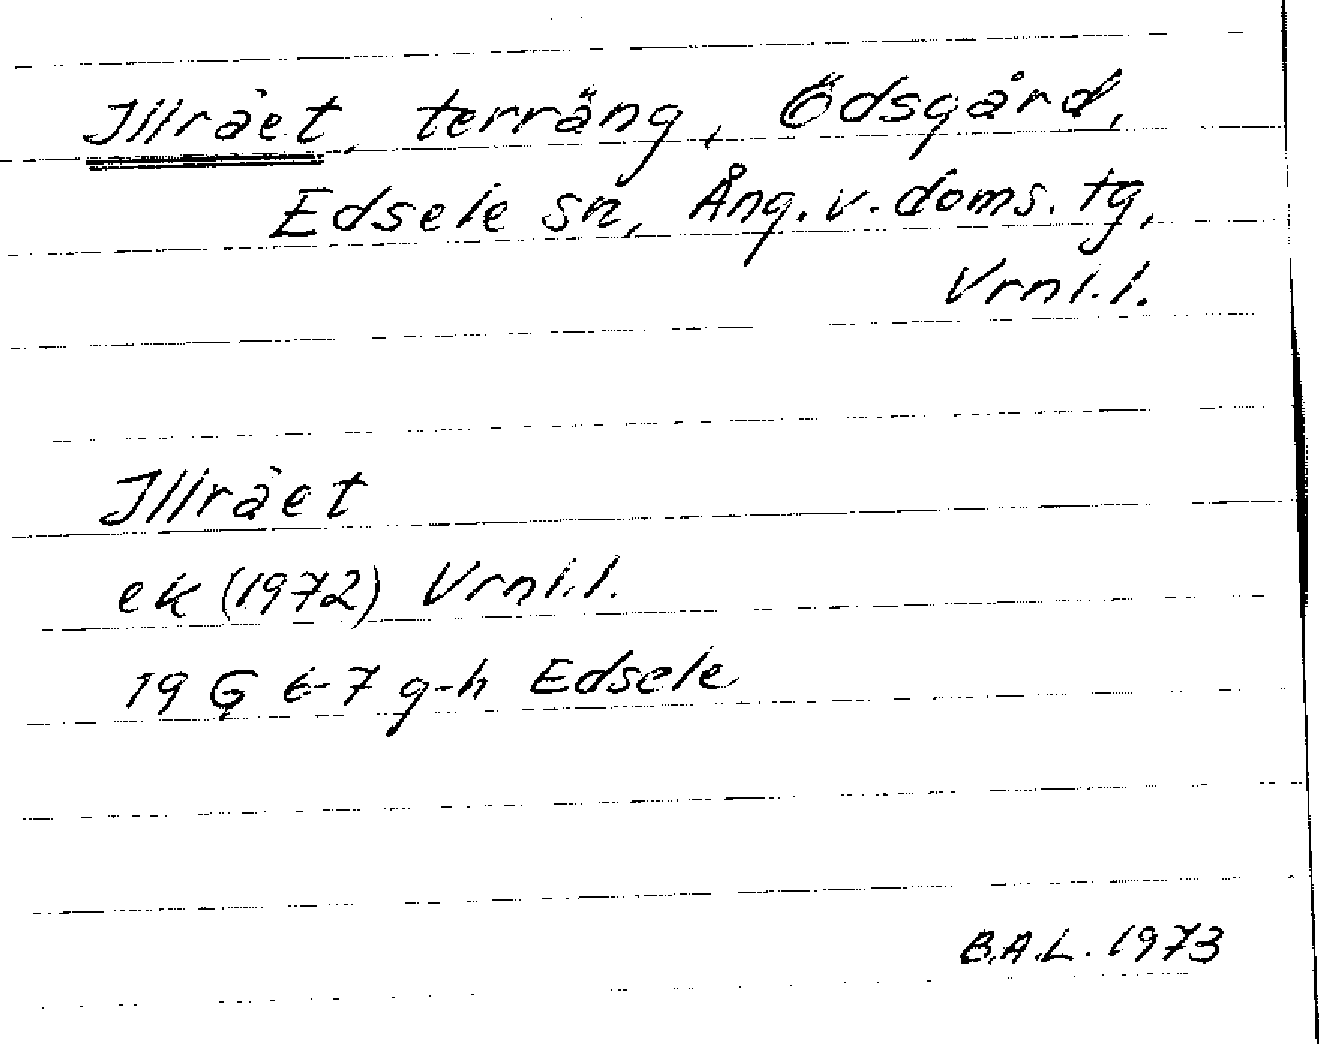 Illrået, terräng, Ödsgård,
Edsele sn, Ång. v. doms. tg,
Vrnl.l.
Illrået
ek (1972) Vrnl.l.
19 G 6-7 g-h Edsele
B.A.L. 1973